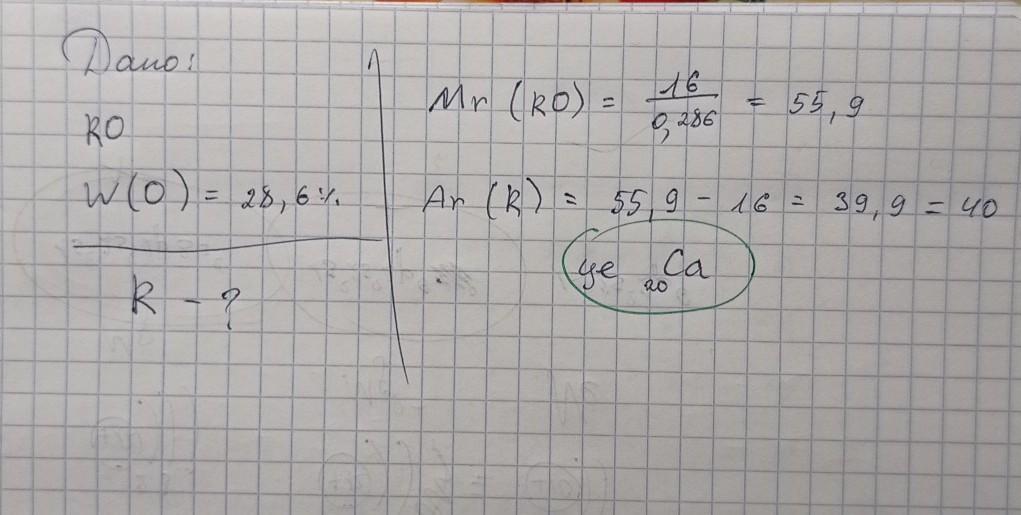 Дано:
RO
W(O) = 28,6%
R - ?
Mr (RO) = 16/0,286 = 55,9
Ar (R) = 55,9 - 16 = 39,9 = 40
це ₂₀Ca